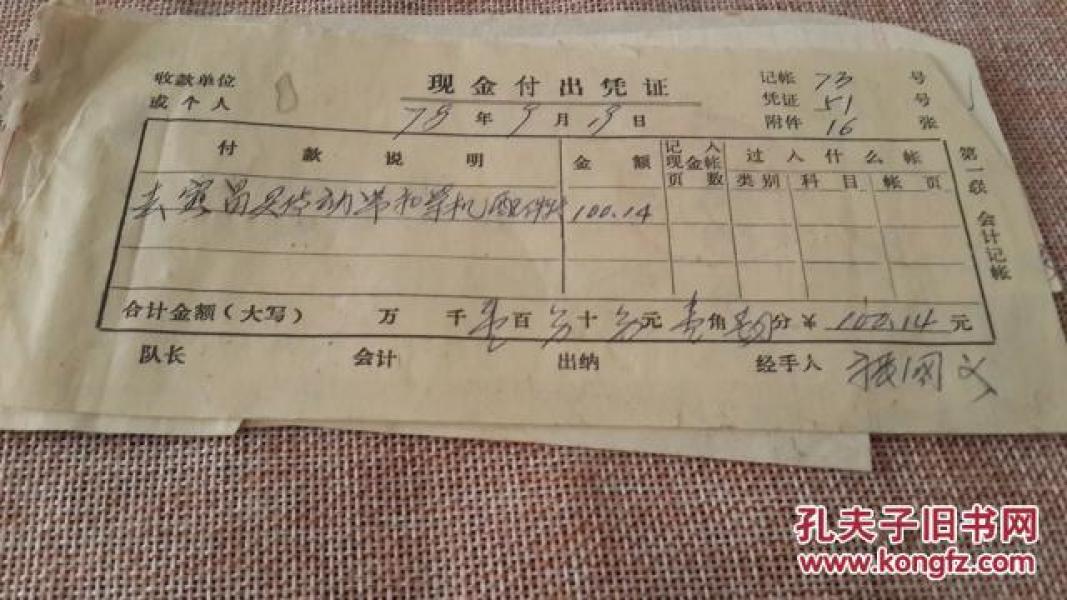 收款单位
或个人
现金付出凭证
78年9月19日
记帐 73 号
凭证 51 号
附件 16 张
付款说明 金额 记入现金帐页数 过入什么帐
类别 科目 帐页
去 昌 传动带和 机配件 100.14
合计金额(大写) 万 千 壹百 另十 另元 壹角 肆分 ¥ 100.14 元
队长 会计 出纳 经手人 国文
第一联 会计记帐
孔夫子旧书网
www.kongfz.com